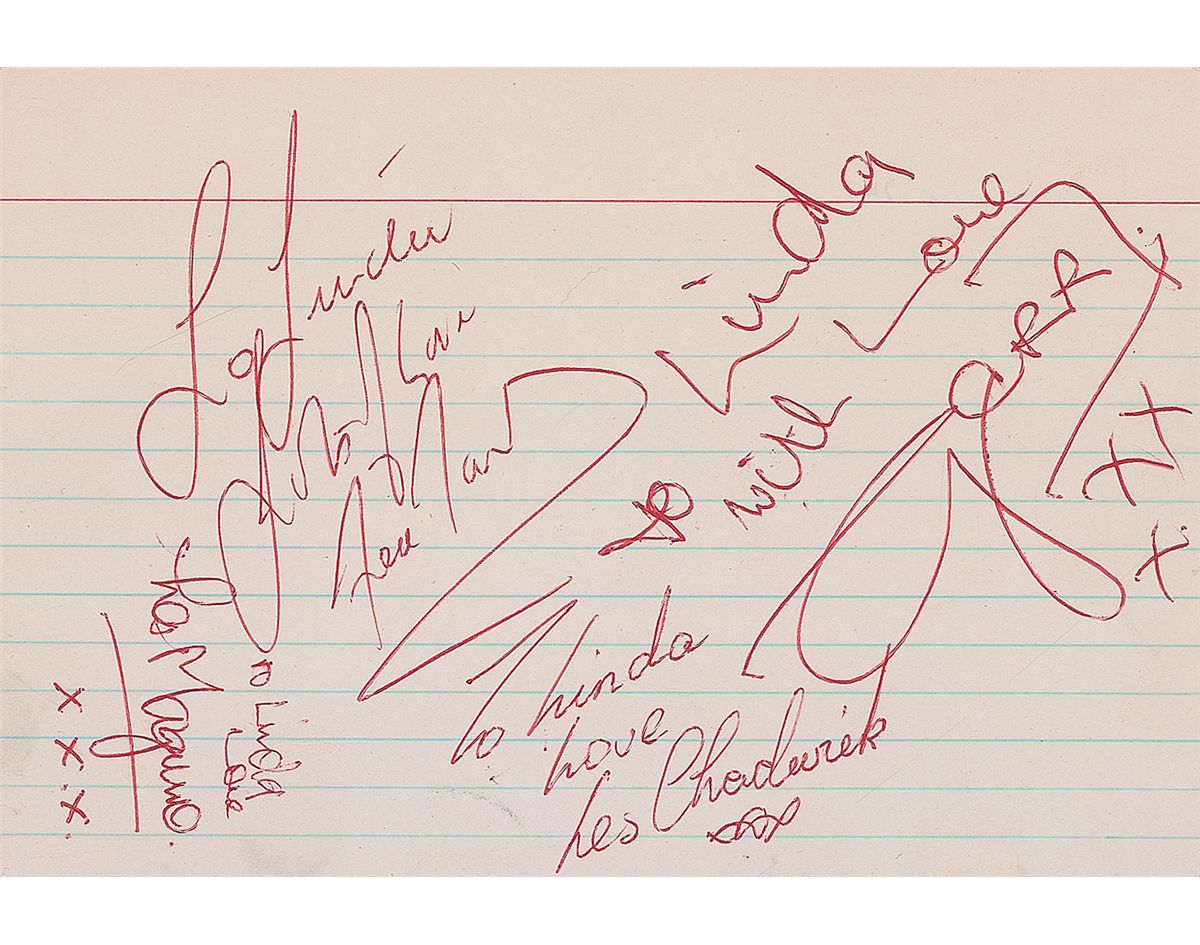 To Linda
Love
Fred
To Linda
with Love
Gerry
x x x
To Linda
Love
Les Chadwick
xxx
To Linda
Love
Les Maguire
x x x